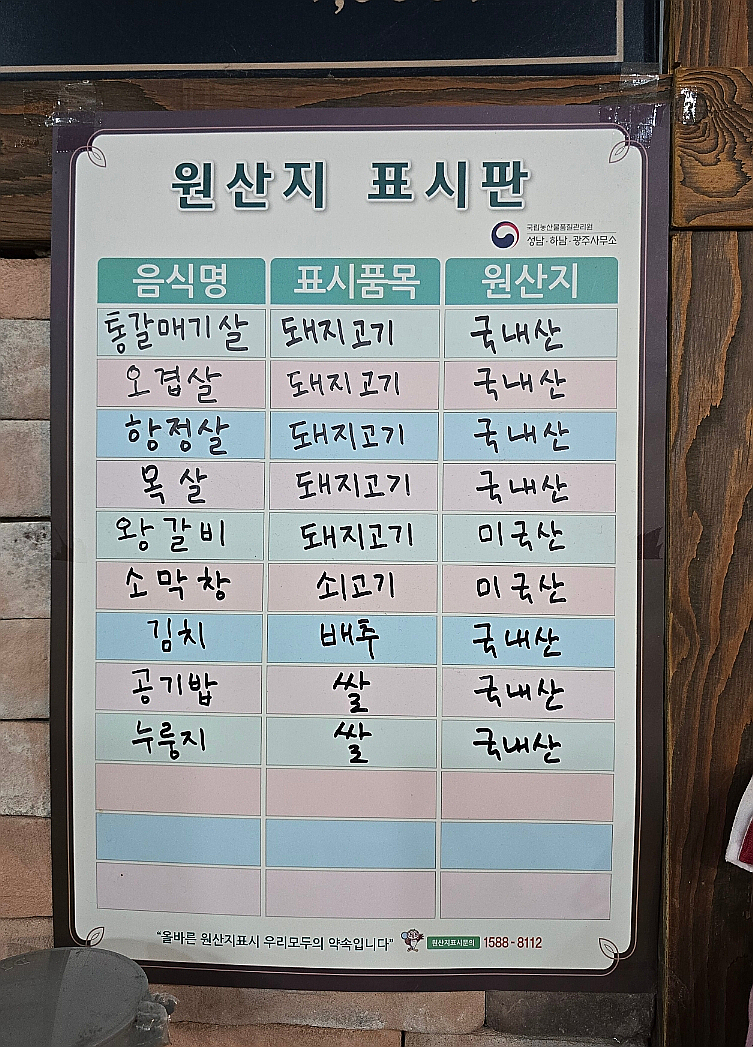 원산지 표시판
국립농산물품질관리원
성남·하남·광주사무소
음식명 표시품목 원산지
통갈매기살 돼지고기 국내산
오겹살 돼지고기 국내산
항정살 돼지고기 국내산
목살 돼지고기 국내산
왕갈비 돼지고기 미국산
소막창 쇠고기 미국산
김치 배추 국내산
공기밥 쌀 국내산
누룽지 쌀 국내산
"올바른 원산지표시 우리모두의 약속입니다" 원산지표시문의 1588-8112